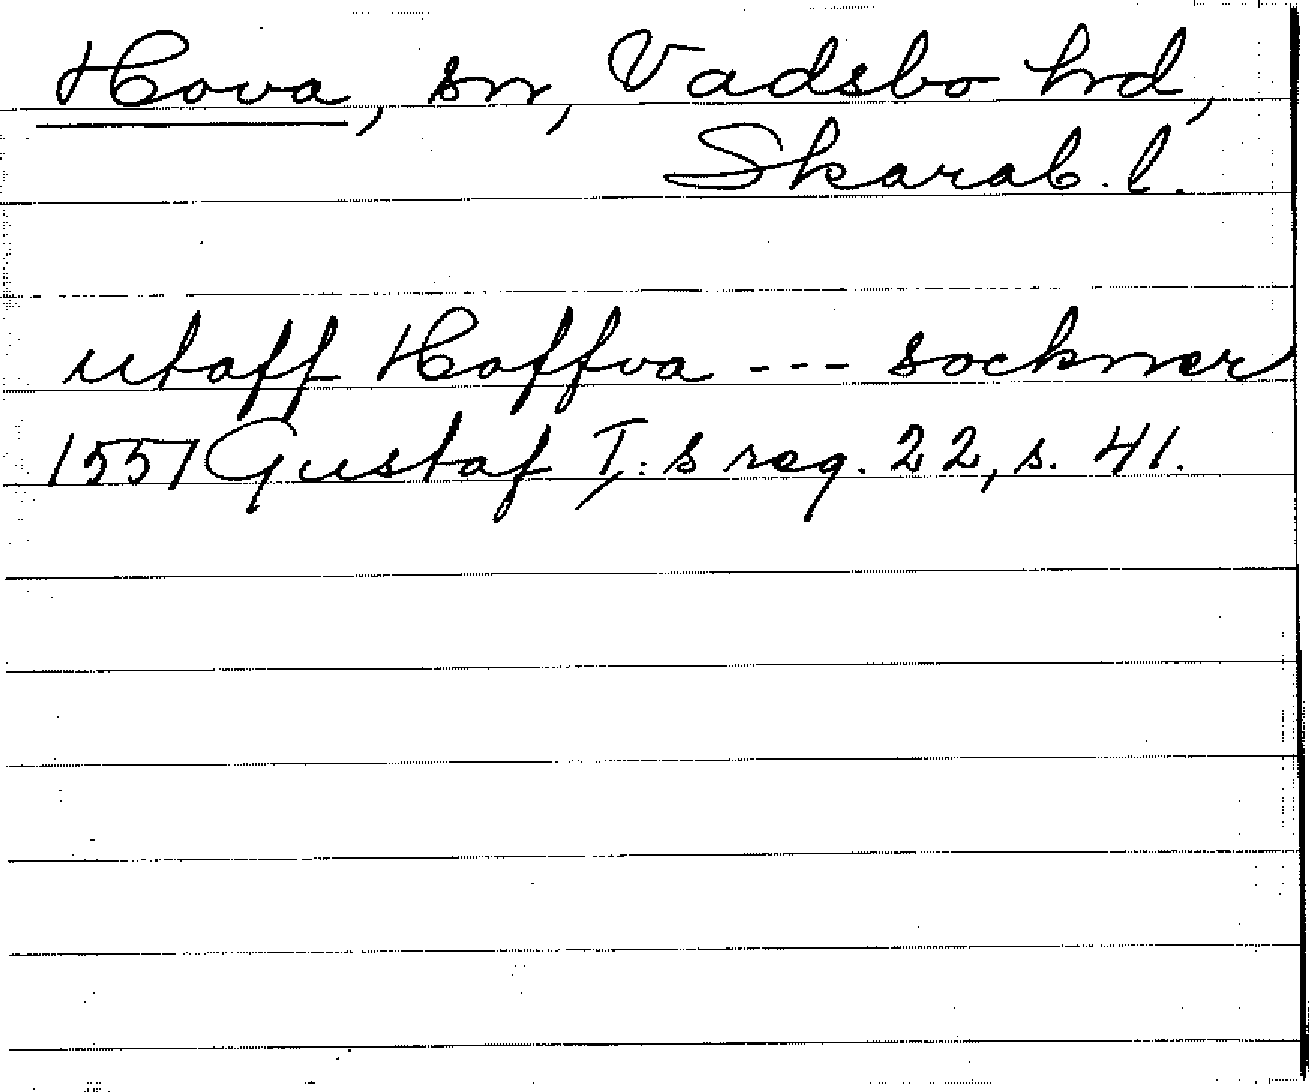 Hova, sn, Vadsbo hrd,
Skarab. l.
utaff Hoffva --- sockner
1551 Gustaf I:s reg. 22, s. 41.